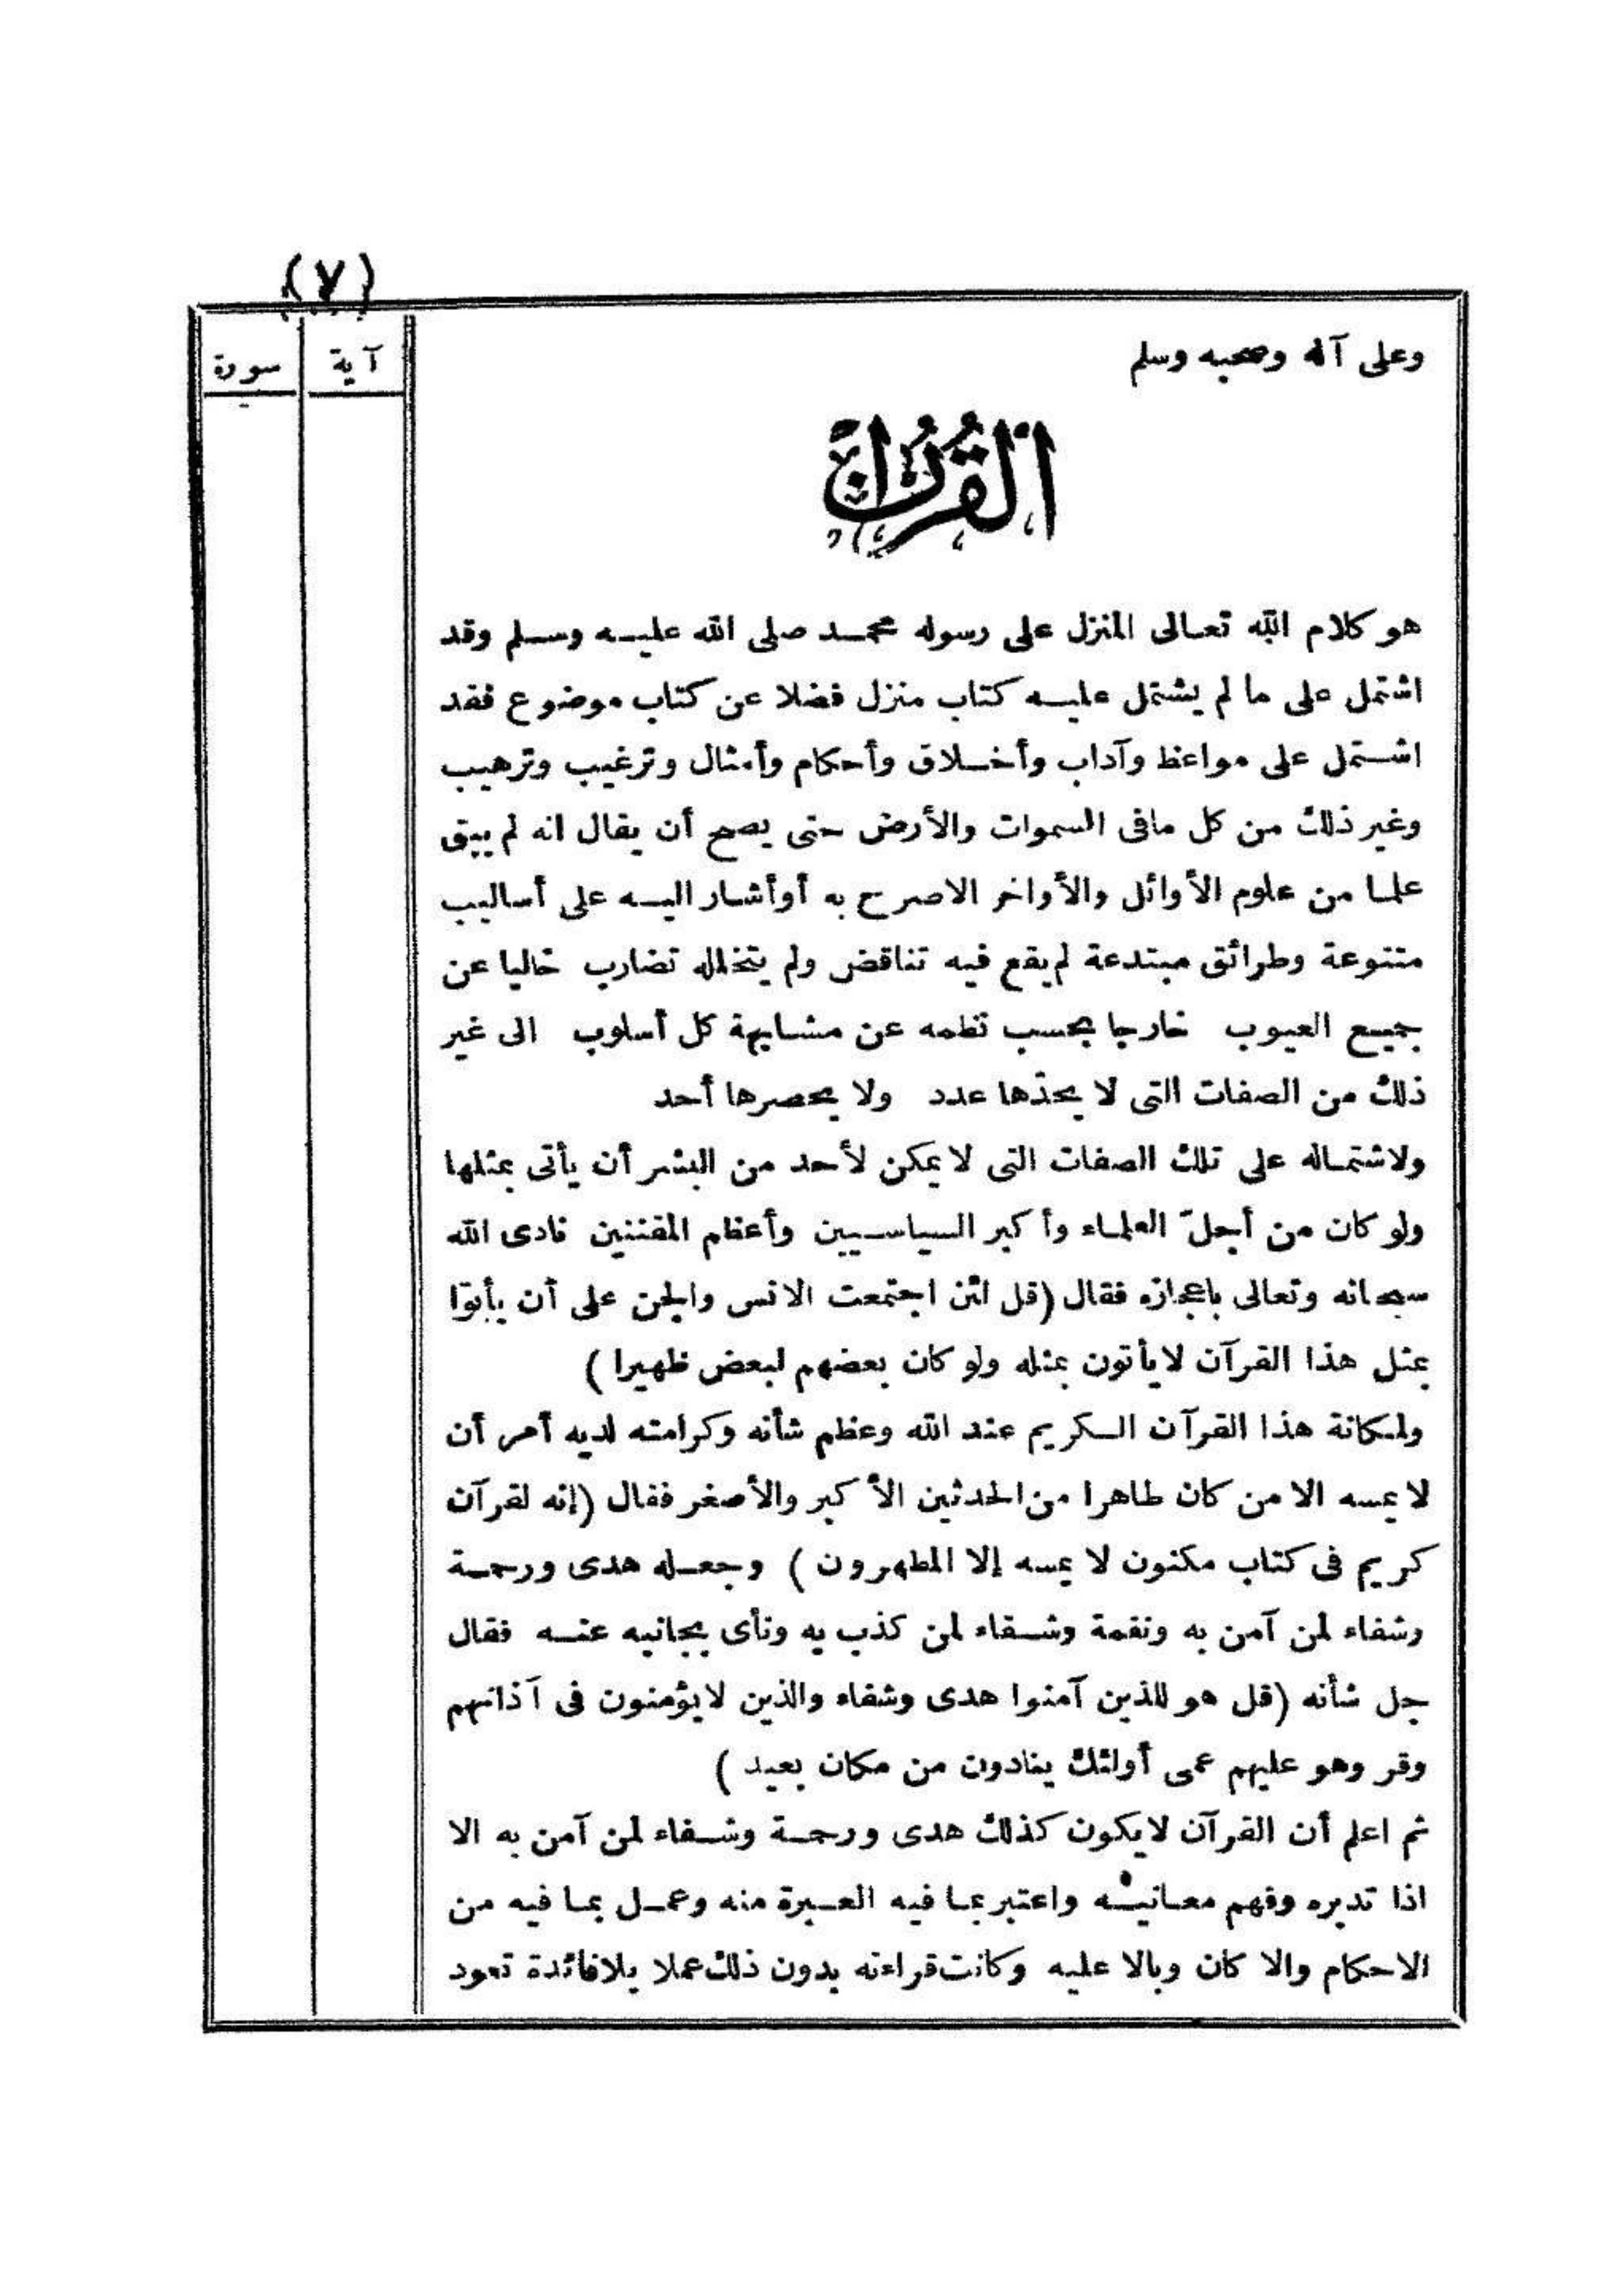 (٧)
آية سورة
وعلى آله وصحبه وسلم
القرآن
هو كلام الله تعالى المنزل على رسوله محمد صلى الله عليه وسلم وقد
اشتمل على ما لم يشتمل عليه كتاب منزل فضلا عن كتاب موضوع فقد
اشتمل على مواعظ وآداب وأخلاق وأحكام وأمثال وترغيب وترهيب
وغير ذلك من كل مافى السموات والأرض حتى يصح أن يقال انه لم يبق
علما من علوم الأوائل والأواخر الاصرح به أوأشار اليه على أساليب
متنوعة وطرائق مبتدعة لم يقع فيه تناقض ولم يتخلله تضارب خاليا عن
جميع العيوب خارجا بحسب نظمه عن مشابهة كل أسلوب الى غير
ذلك من الصفات التى لا يحدّها عدد ولا يحصرها أحد
ولاشتماله على تلك الصفات التى لا يمكن لأحد من البشر أن يأتى بمثلها
ولو كان من أجلّ العلماء وأكبر السياسيين وأعظم المقننين نادى الله
سبحانه وتعالى باعجازه فقال (قل لئن اجتمعت الانس والجن على أن يأتوا
بمثل هذا القرآن لايأتون بمثله ولو كان بعضهم لبعض ظهيرا )
ولمكانة هذا القرآن الكريم عند الله وعظم شأنه وكرامته لديه أمر أن
لا يمسه الا من كان طاهرا من الحدثين الأكبر والأصغر فقال (إنه لقرآن
كريم فى كتاب مكنون لا يمسه إلا المطهرون ) وجعله هدى ورحمة
وشفاء لمن آمن به ونقمة وشقاء لمن كذب به ونأى بجانبه عنه فقال
جل شأنه (قل هو للذين آمنوا هدى وشفاء والذين لايؤمنون فى آذانهم
وقر وهو عليهم عمى أولئك ينادون من مكان بعيد )
ثم اعلم أن القرآن لايكون كذلك هدى ورحمة وشفاء لمن آمن به الا
اذا تدبره وفهم معانيه واعتبر بما فيه العبرة منه وعمل بما فيه من
الاحكام والا كان وبالا عليه وكانت قراءته بدون ذلك عملا بلافائدة تعود